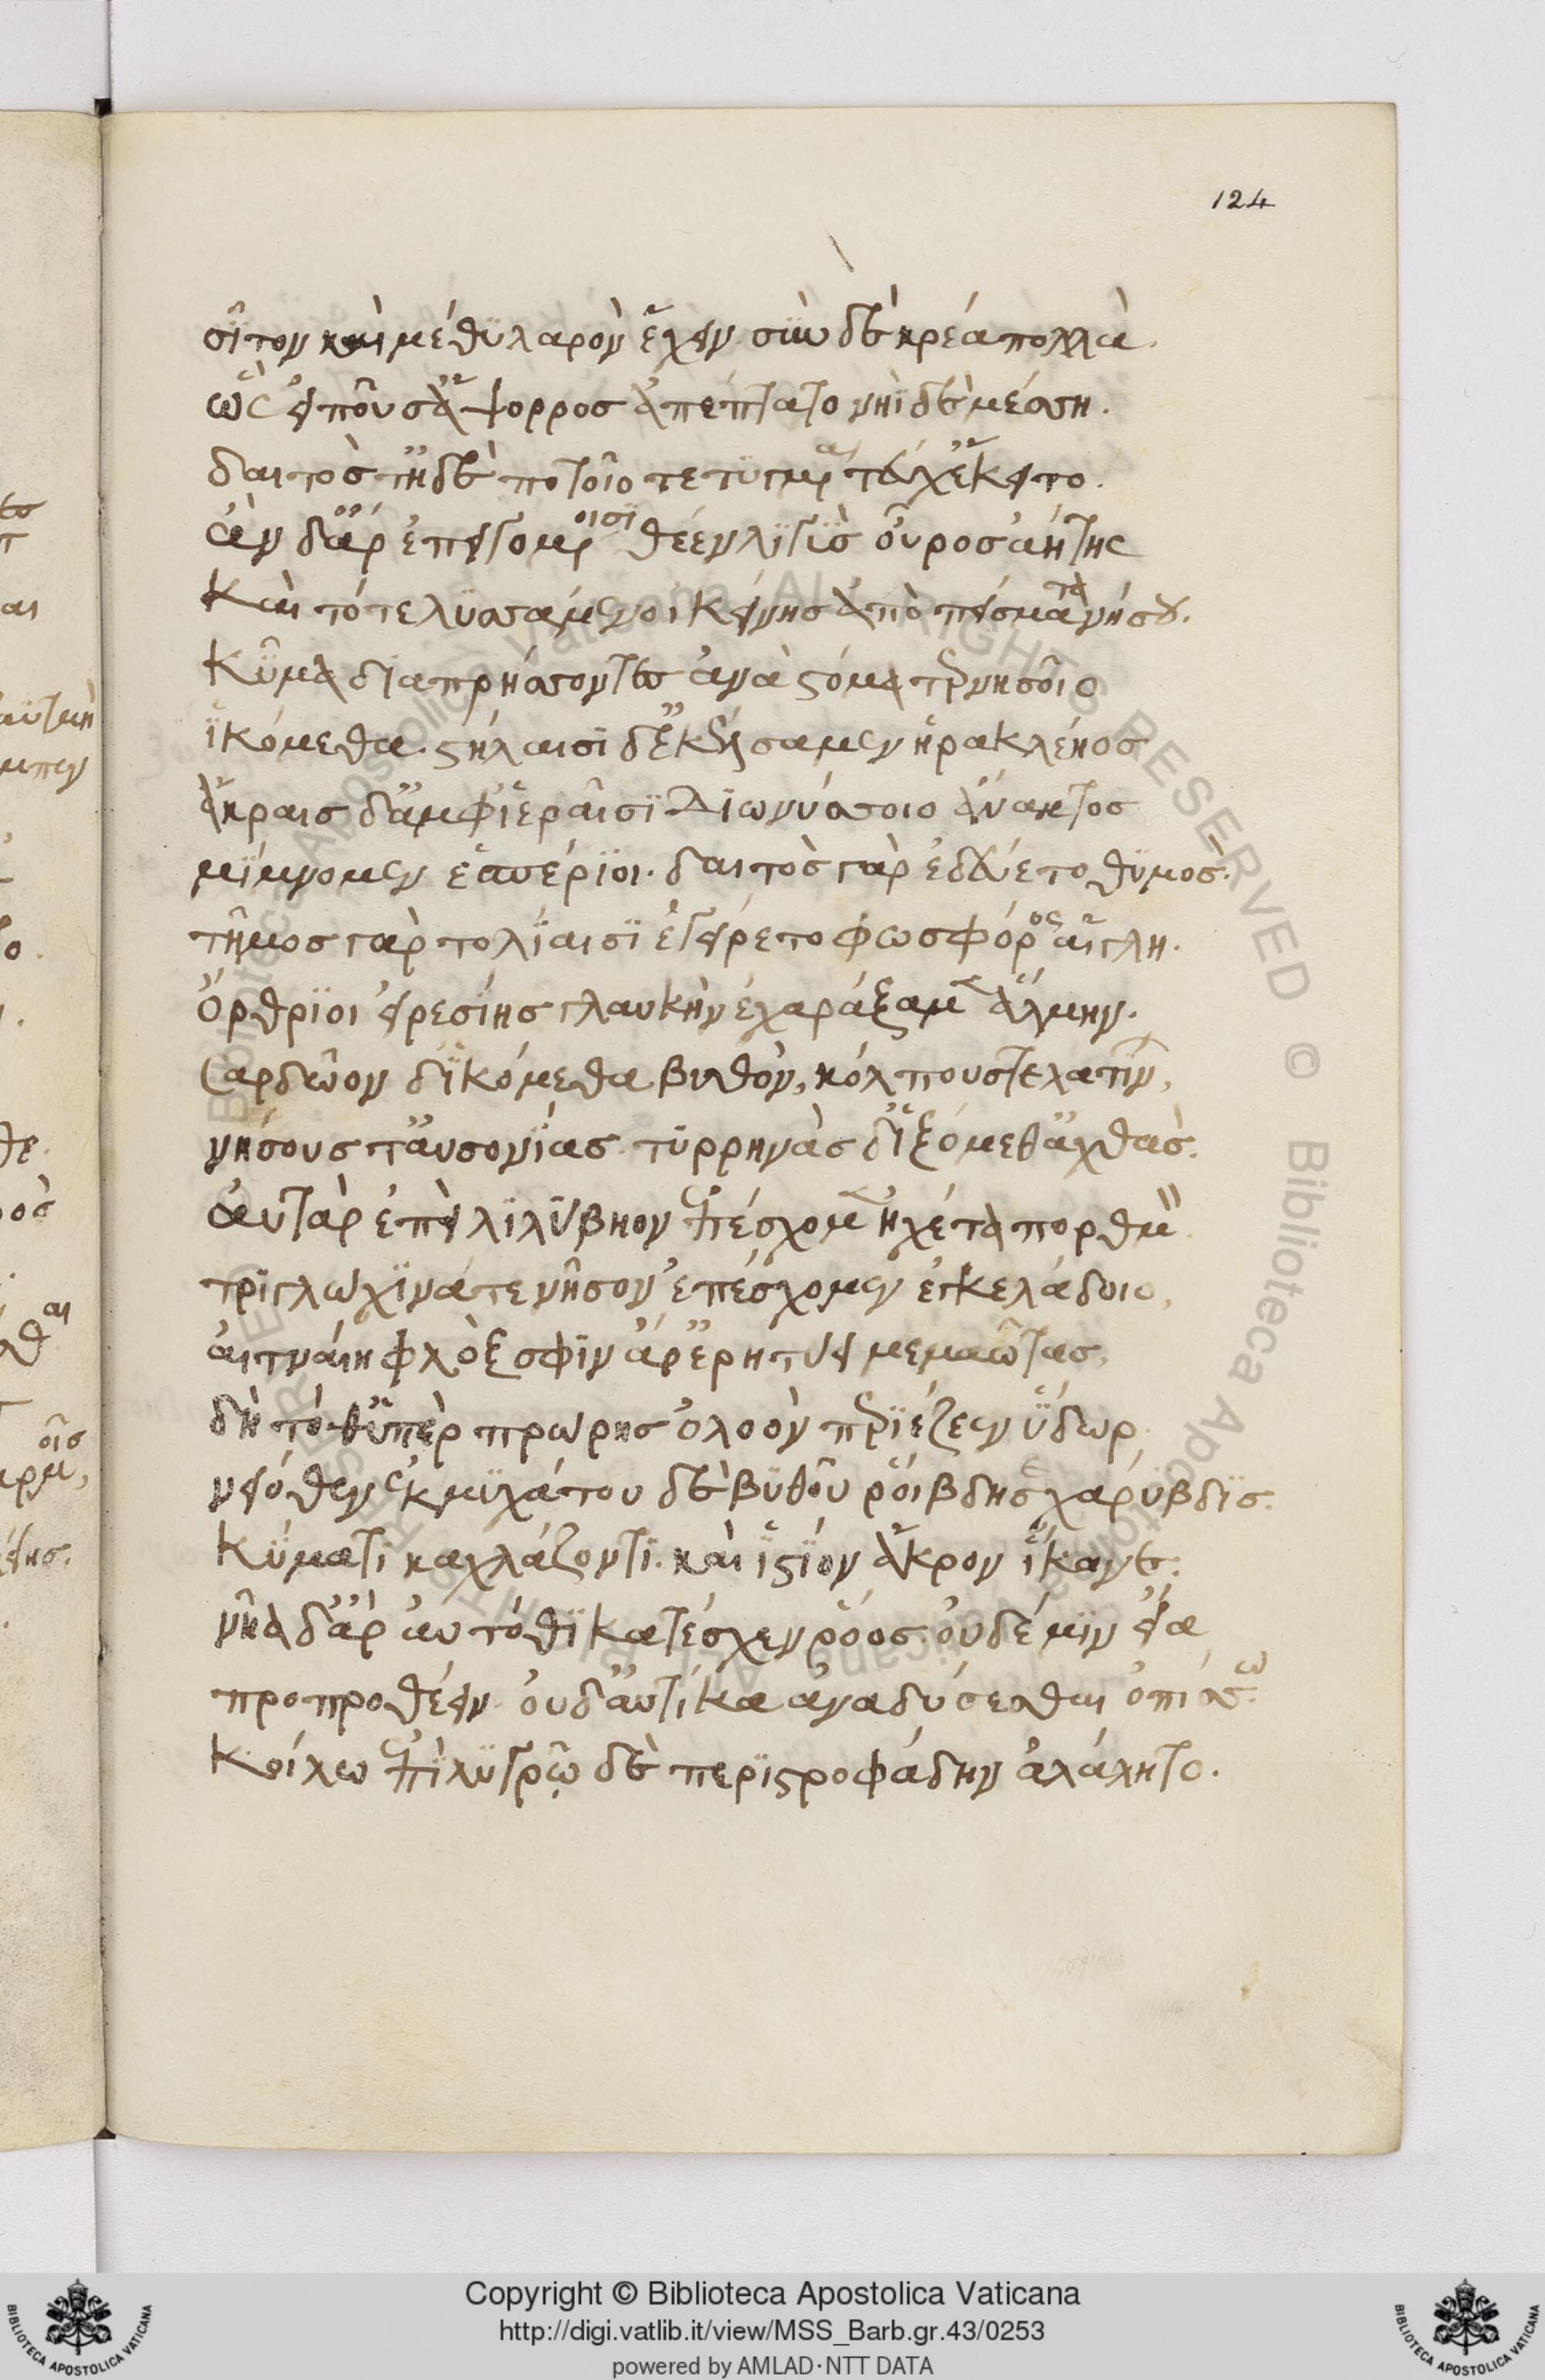 124
σῖτον καὶ μέθϋ λαρὸν ἔχειν σϋν δὲ κρέα πολλὰ.
ὣς εἰποῦσ ἄψορρος ἀπέπτατο νηῒ δὲ μέσση.
δαιτὸς τῆδὲ ποτοῖο τετϋγμένα τεύχε ἔκειτο.
ἂν δἄρ ἐπειγομένοισϊ θέεν λϊγϋς οὖρος ἀήτης
Καὶ τότε λϋσσάμενοι κείνης ἀπὸ πείσματα νήσου.
Κῦμα δϊαπρήσσοντες ἀνὰ στόμα τερνησοῖο
ἱκόμεθα. στήλαισϊ δ ἐκέλσαμεν ἡρακλῆος
ἄκραις δἀμφ ἱεραῖσϊ Δϊωνύσσοιο ἄνακτος
μϊμνομεν ἑσπέρϊοι. δαιτὸς γὰρ ἐδεύετο θϋμος.
τῆμος γὰρ πολϊαισϊ ἐγείρετο φωσφόρος αἴγλη.
Ὄρθρϊοι εἰρεσϊης γλαυκὴν ἐχαράξαμεν ἅλμην.
Σαρδῶον δἱκόμεθα βυθὸν, κόλπους τε λατίνων,
νήσους τ αὐσονϊας. τϋρρηνὰς δ ἱξόμεθ ἀχθὰς.
ἀυτὰρ ἐπεὶ λϊλϋβηον ἐπέσχομεν ἠχέτα πορθμὸν
τρϊγλωχϊνά τε νῆσον ἐπέσχομεν ἐγκελάδοιο,
ἀιτναίη φλὸξ σφϊν ἀρ ἐρήτυε μεμαῶτας.
δὴ τόθ ὕπὲρ πρώρης ὀλοὸν περϊέζεεν ὕδωρ
νειόθεν ἐκ μϋχάτου δὲ βϋθοῦ ῥοίβδησε χάρϋβδϊς.
Κϋματϊ καχλάζοντϊ. καὶ ἱστϊον ἄκρον ἵκανε.
νῆα δἂρ ἀυτόθϊ κατέσχεν ῥόος. οὐδέ μϊν εἴα
προπροθέειν. ὀυδ ἀυτϊκα ἀναδύσεσθαι ὀπίσσω.
Κοίλω ἐπϊ λϋγρῷ δὲ περϊστροφάδην ἀλάλητο.
Copyright © Biblioteca Apostolica Vaticana
http://digi.vatlib.it/view/MSS_Barb.gr.43/0253
powered by AMLAD·NTT DATA